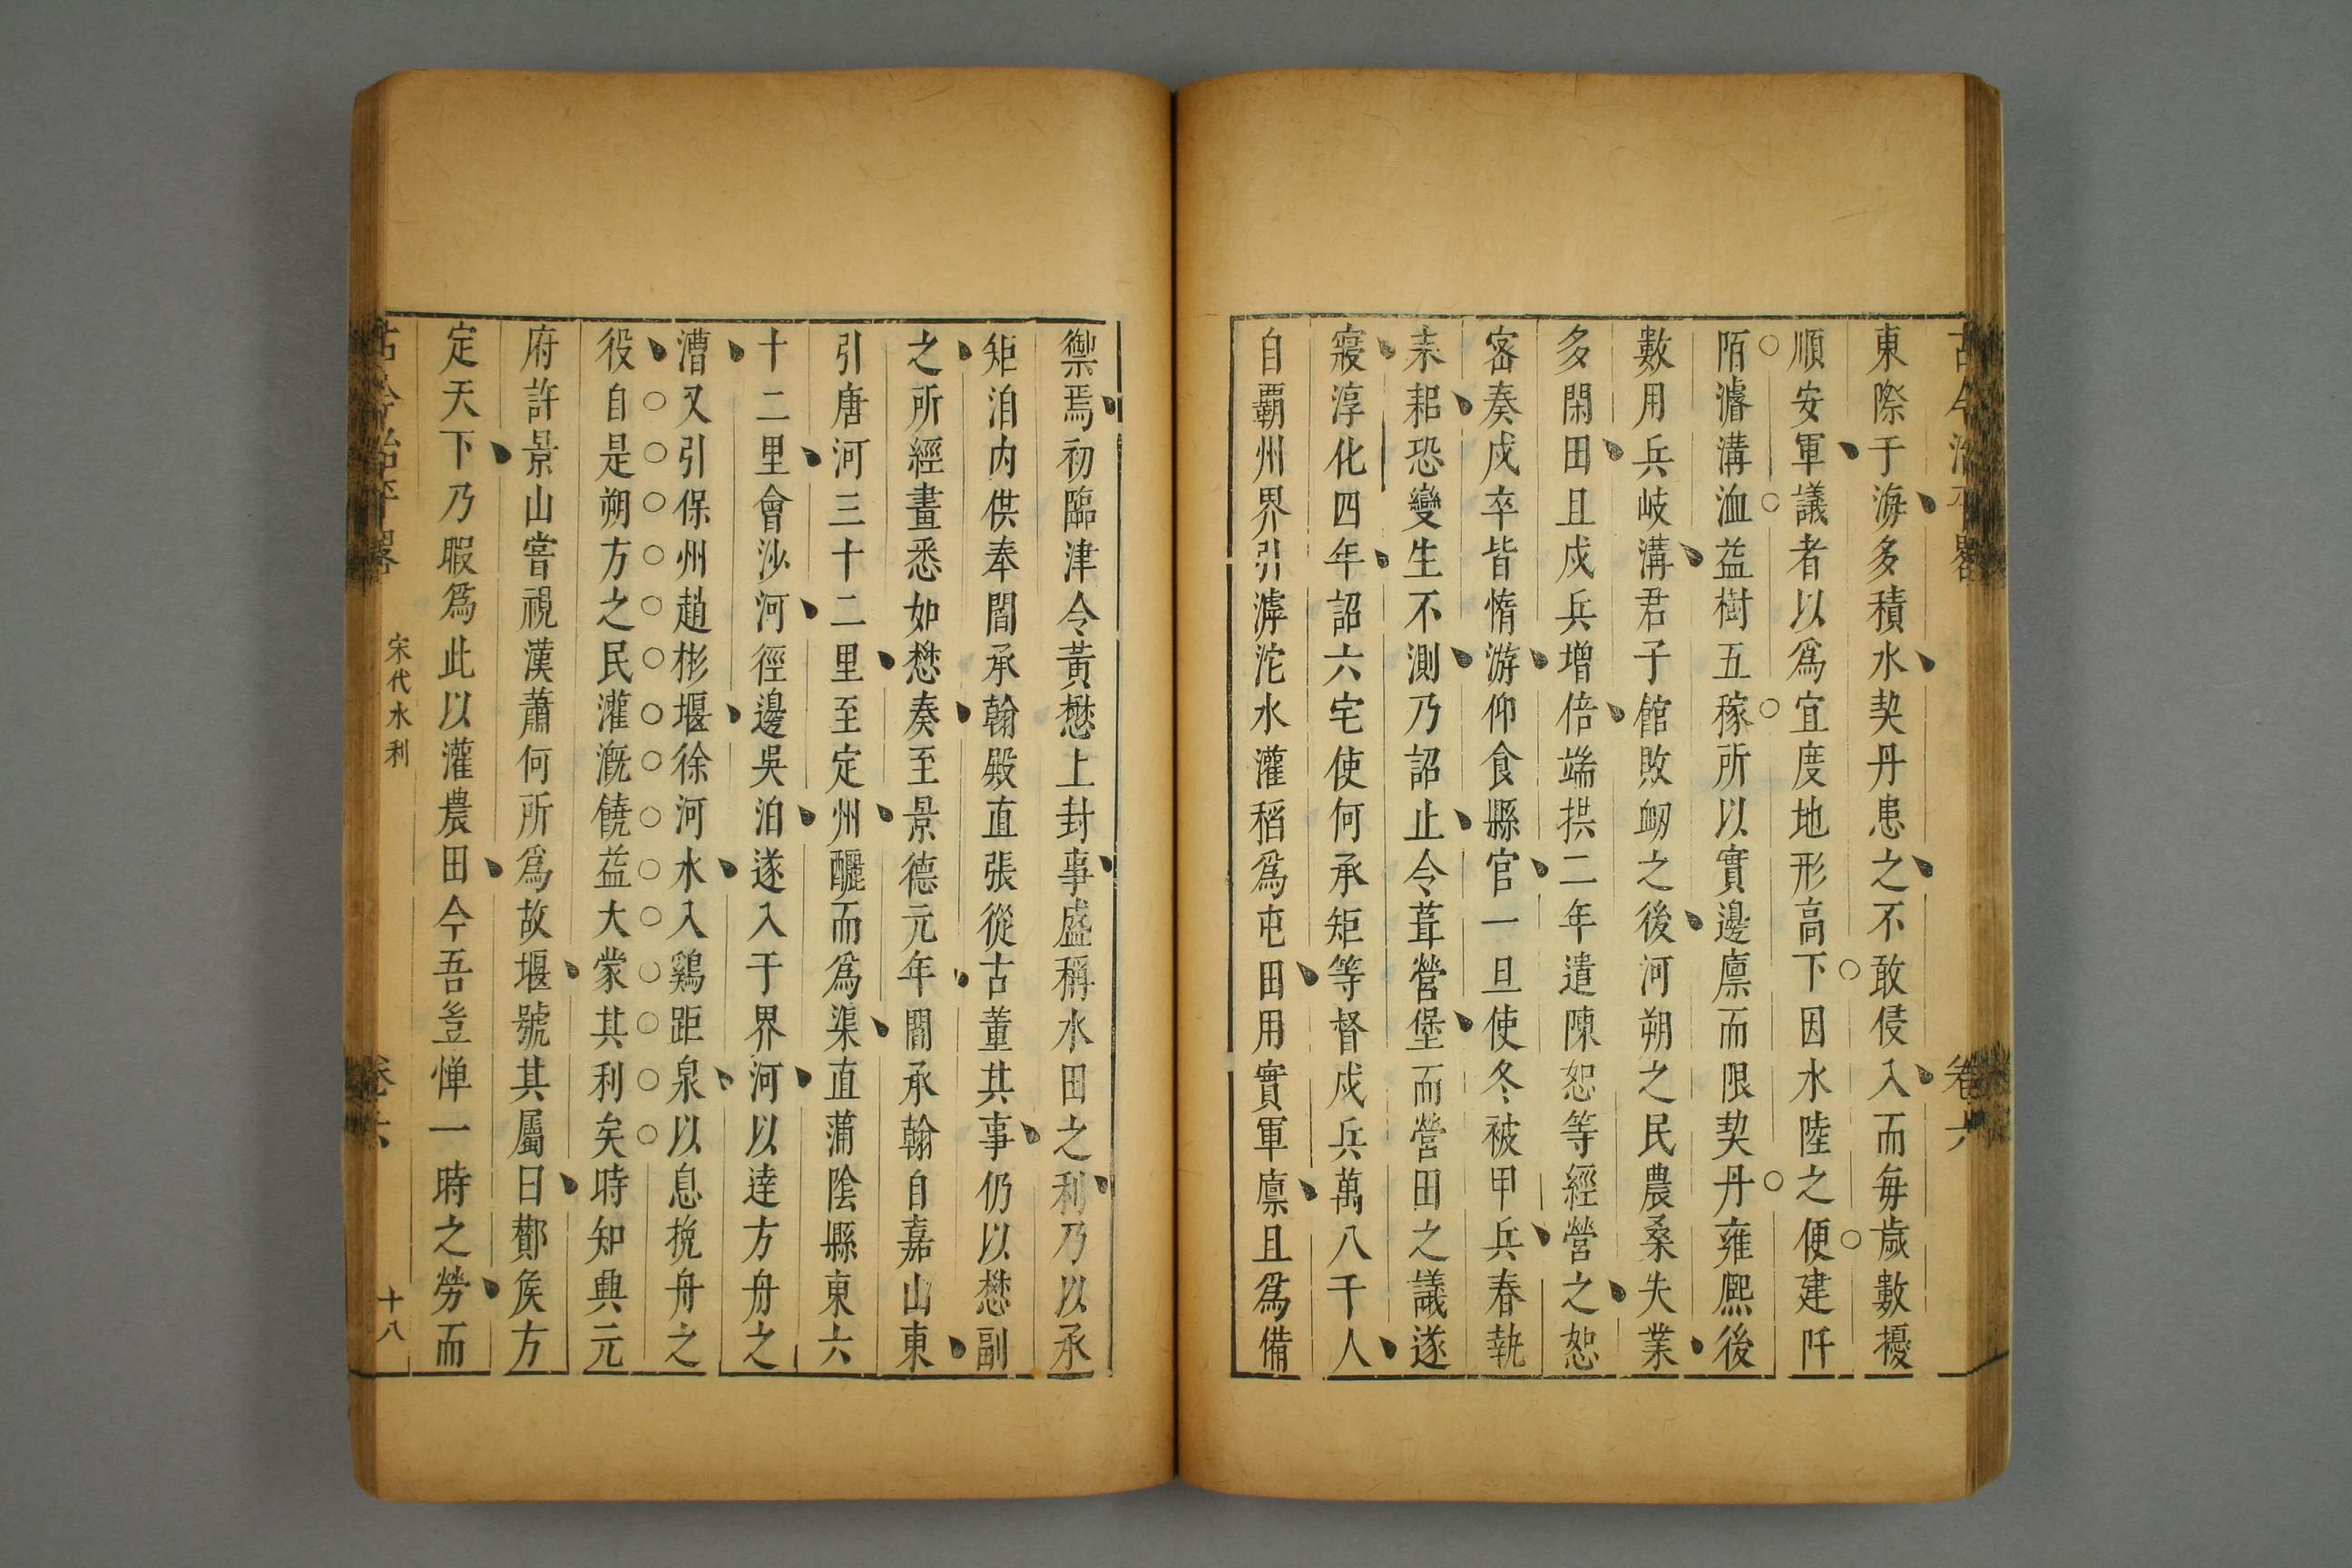 古今治平畧
卷六
東際于海多積水契丹患之不敢侵入而每歲數擾
順安軍議者以爲宜度地形高下因水陸之便建阡
陌濬溝洫益樹五稼所以實邊廪而限契丹雍熙後
數用兵岐溝君子館敗衂之後河朔之民農桑失業
多閑田且戍兵增倍端拱二年遣陳恕等經營之恕
密奏戍卒皆惰游仰食縣官一旦使冬被甲兵春執
耒耜恐變生不測乃詔止令葺營堡而營田之議遂
寢淳化四年詔六宅使何承矩等督戍兵萬八千人
自覇州界引滹沱水灌稻爲屯田用實軍廪且爲備
禦焉初臨津令黃懋上封事盛稱水田之利乃以承
矩洎内供奉閻承翰殿直張從古董其事仍以懋副
之所經畫悉如懋奏至景德元年閻承翰自嘉山東
引唐河三十二里至定州釃而爲渠直蒲陰縣東六
十二里會沙河徑邊吳泊遂入于界河以達方舟之
漕又引保州趙彬堰徐河水入鷄距泉以息挽舟之
役自是朔方之民灌漑饒益大蒙其利矣時知興元
府許景山嘗視漢蕭何所爲故堰號其屬曰酇矦方
定天下乃暇爲此以灌農田今吾豈惮一時之勞而
古今治平畧
宋代水利
卷六
十八